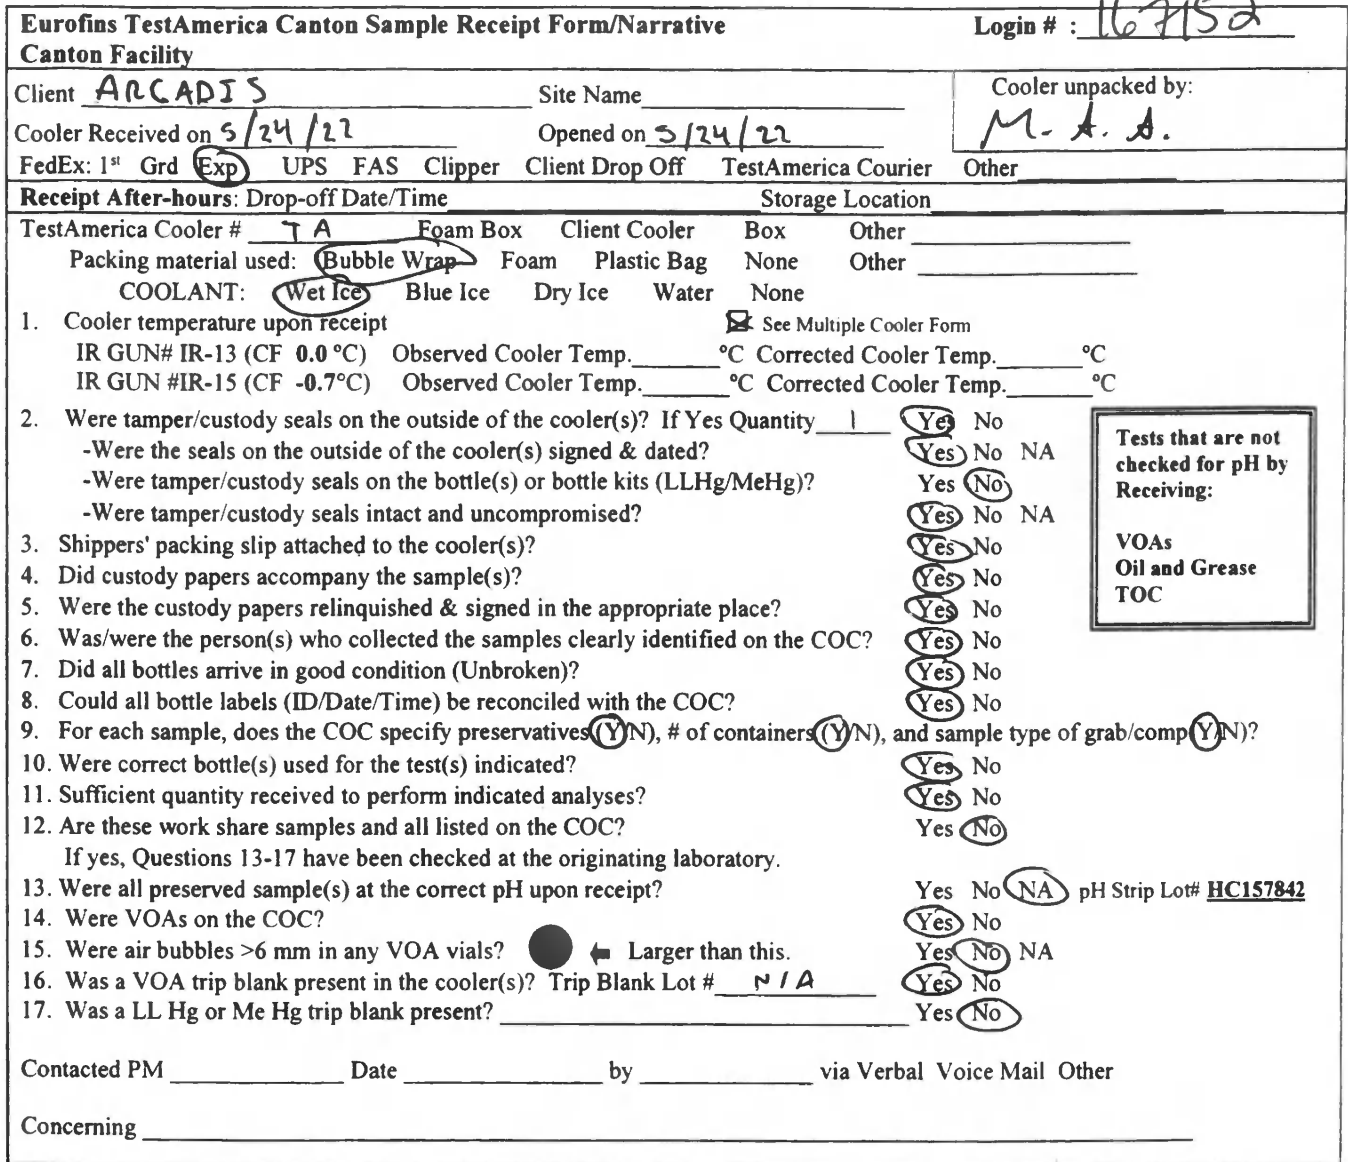 Eurofins TestAmerica Canton Sample Receipt Form/Narrative Login # : 167152
Canton Facility
Client ARCADIS Site Name Cooler unpacked by:
Cooler Received on 5/24/22 Opened on 5/24/22 M. A. A.
FedEx: 1st Grd Exp UPS FAS Clipper Client Drop Off TestAmerica Courier Other
Receipt After-hours: Drop-off Date/Time Storage Location
TestAmerica Cooler # TA Foam Box Client Cooler Box Other
Packing material used: Bubble Wrap Foam Plastic Bag None Other
COOLANT: Wet Ice Blue Ice Dry Ice Water None
1. Cooler temperature upon receipt See Multiple Cooler Form
IR GUN# IR-13 (CF 0.0 °C) Observed Cooler Temp. °C Corrected Cooler Temp. °C
IR GUN #IR-15 (CF -0.7°C) Observed Cooler Temp. °C Corrected Cooler Temp. °C
2. Were tamper/custody seals on the outside of the cooler(s)? If Yes Quantity 1 Yes No
-Were the seals on the outside of the cooler(s) signed & dated? Yes No NA
-Were tamper/custody seals on the bottle(s) or bottle kits (LLHg/MeHg)? Yes No
-Were tamper/custody seals intact and uncompromised? Yes No NA
3. Shippers' packing slip attached to the cooler(s)? Yes No
4. Did custody papers accompany the sample(s)? Yes No
5. Were the custody papers relinquished & signed in the appropriate place? Yes No
6. Was/were the person(s) who collected the samples clearly identified on the COC? Yes No
7. Did all bottles arrive in good condition (Unbroken)? Yes No
8. Could all bottle labels (ID/Date/Time) be reconciled with the COC? Yes No
Tests that are not
checked for pH by
Receiving:
VOAs
Oil and Grease
TOC
9. For each sample, does the COC specify preservatives (Y/N), # of containers (Y/N), and sample type of grab/comp (Y/N)?
10. Were correct bottle(s) used for the test(s) indicated? Yes No
11. Sufficient quantity received to perform indicated analyses? Yes No
12. Are these work share samples and all listed on the COC? Yes No
If yes, Questions 13-17 have been checked at the originating laboratory.
13. Were all preserved sample(s) at the correct pH upon receipt? Yes No NA pH Strip Lot# HC157842
14. Were VOAs on the COC? Yes No
15. Were air bubbles >6 mm in any VOA vials? Larger than this. Yes No NA
16. Was a VOA trip blank present in the cooler(s)? Trip Blank Lot # N/A Yes No
17. Was a LL Hg or Me Hg trip blank present? Yes No
Contacted PM Date by via Verbal Voice Mail Other
Concerning